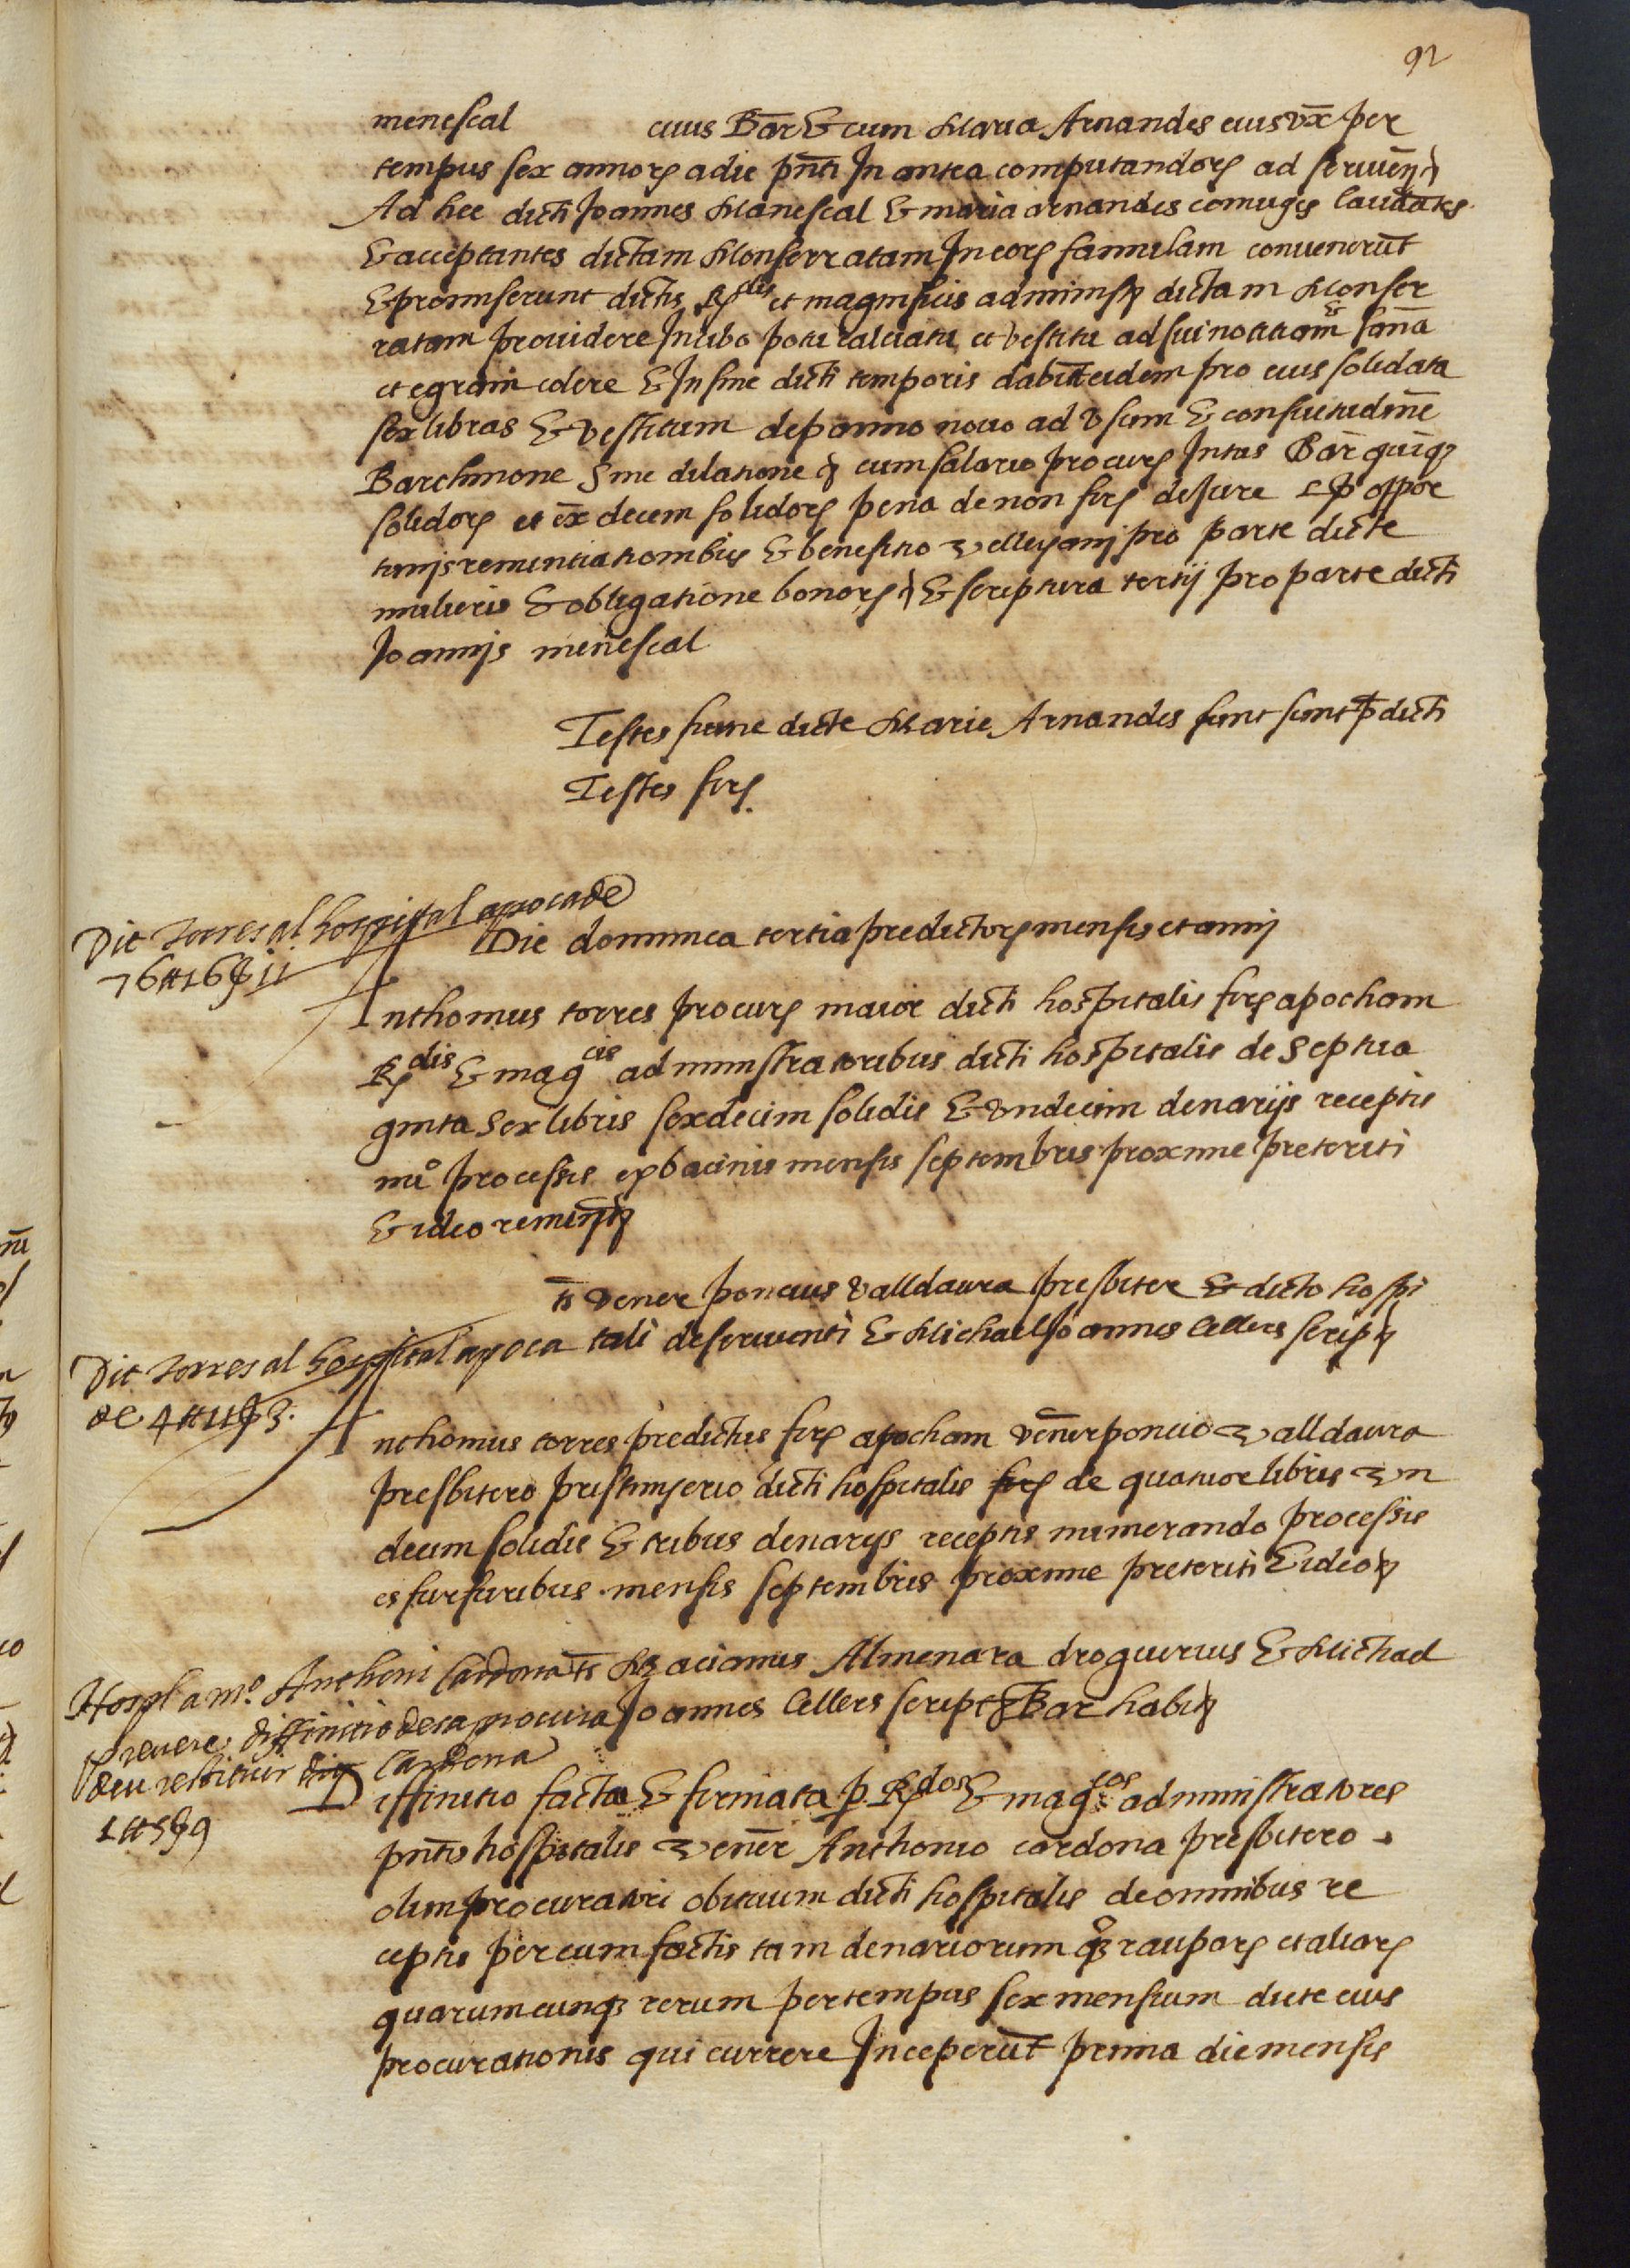 92
menescal cuius Bar̄ & cum Maria Arnandes eius vx̄ per
tempus sex annorꝝ a die pn̄ti In antea computandorꝝ ad seruien̄
Ad hec dicti Joannes Manescal & maria arnandes coniuges laudātes
& acceptantes dictam Monserratam In eorꝝ famulam conuenerūt
& promiserunt dictis Rdis et magnificis administꝝ dictam Monser
ratam prouidere In cibo potu calciatu et vestitu ad sui notitiam sanā
et egram colere & In fine dicti temporis dabūt eidem pro eius solidata
sex libras & vestitum de panno nouo ad vsum & consuetudinē
Barchinone Sine dilatione cum salario procurꝝ Intus Bar̄ quinqꝫ
solidorꝝ et ex̄ decem solidorꝝ pena de non firꝝ de Jure oppor
tunijs renuntiationibus & benefitio velleyani pro parte dicte
mulieris & obligatione bonorꝝ & scriptura tertij pro parte dicti
Joannis menescal
Testes firme dicte Marie Arnandes sunt sunt p̄dicti
Testes firꝝ
Dit torres al hospital apoca de
76 ₶ 16 ß 11
Die dominica tertia predictorꝝ mensis et anni
Anthonius torres procurꝝ maior dicti hospitalis firꝝ apocham
Rdis & magcis administratoribus dicti hospitalis de Septua
ginta Sex libris sexdecim solidis & vndecim denarijs receptis
nu° processis ex bacinis mensis septembris proxime preteriti
& ideo renun̄
ts̄ vener poncius valldaura presbiter & dicto hospi
tali deseruienti & Michael Joannes Cellers scripꝫ
Dit torres al hospital apoca
de 4 ₶ 11 ß 3.
Anthonius torres predictus firꝝ apocham vener̄ poncio valldaura
presbitero pristinyerio dicti hospitalis firꝝ de quatuor libris vn
decim solidis & tribus denarys receptis numerando processis
es furfuribus mensis septembris proxime preteriti E ideo
ts̄ Macianus Almenara droguerius & Michael
Joannes Cellers scriptꝫ Bar habiꝫ
Hospl a m° Anthoni Cardona
prevere diffinitio de la procura
deu restituir dit Cardona
1 ₶ 5 ß 9
Diffinitio facta & firmata p̱ Rdos & magcos administratores
pn̄tis hospitalis vener̄ Anthonio cardona presbitero
olim procuratori obituum dicti hospitalis de omnibus re
ceptis per eum factis tam denariorum qꝫ rauparꝝ et aliarꝝ
quarumcunqꝫ rerum per tempus sex mensium dicte eius
procurationis qui currere Inceperūt prima die mensis